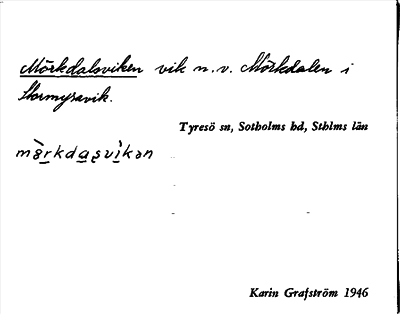 Mörkdalsviken vik n.v. Mörkdalen i
Stormyravik.
Tyresö sn, Sotholms hd, Sthlms län
Karin Grafström 1946